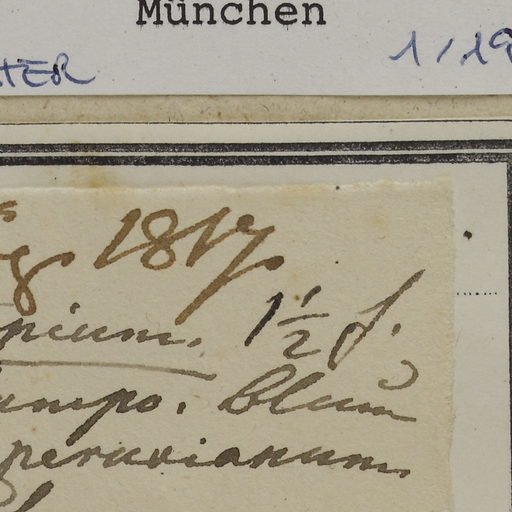 München
TER 1/19
g 1817
pium. 1 1/2 f.
ampo. blum
peruvianum.